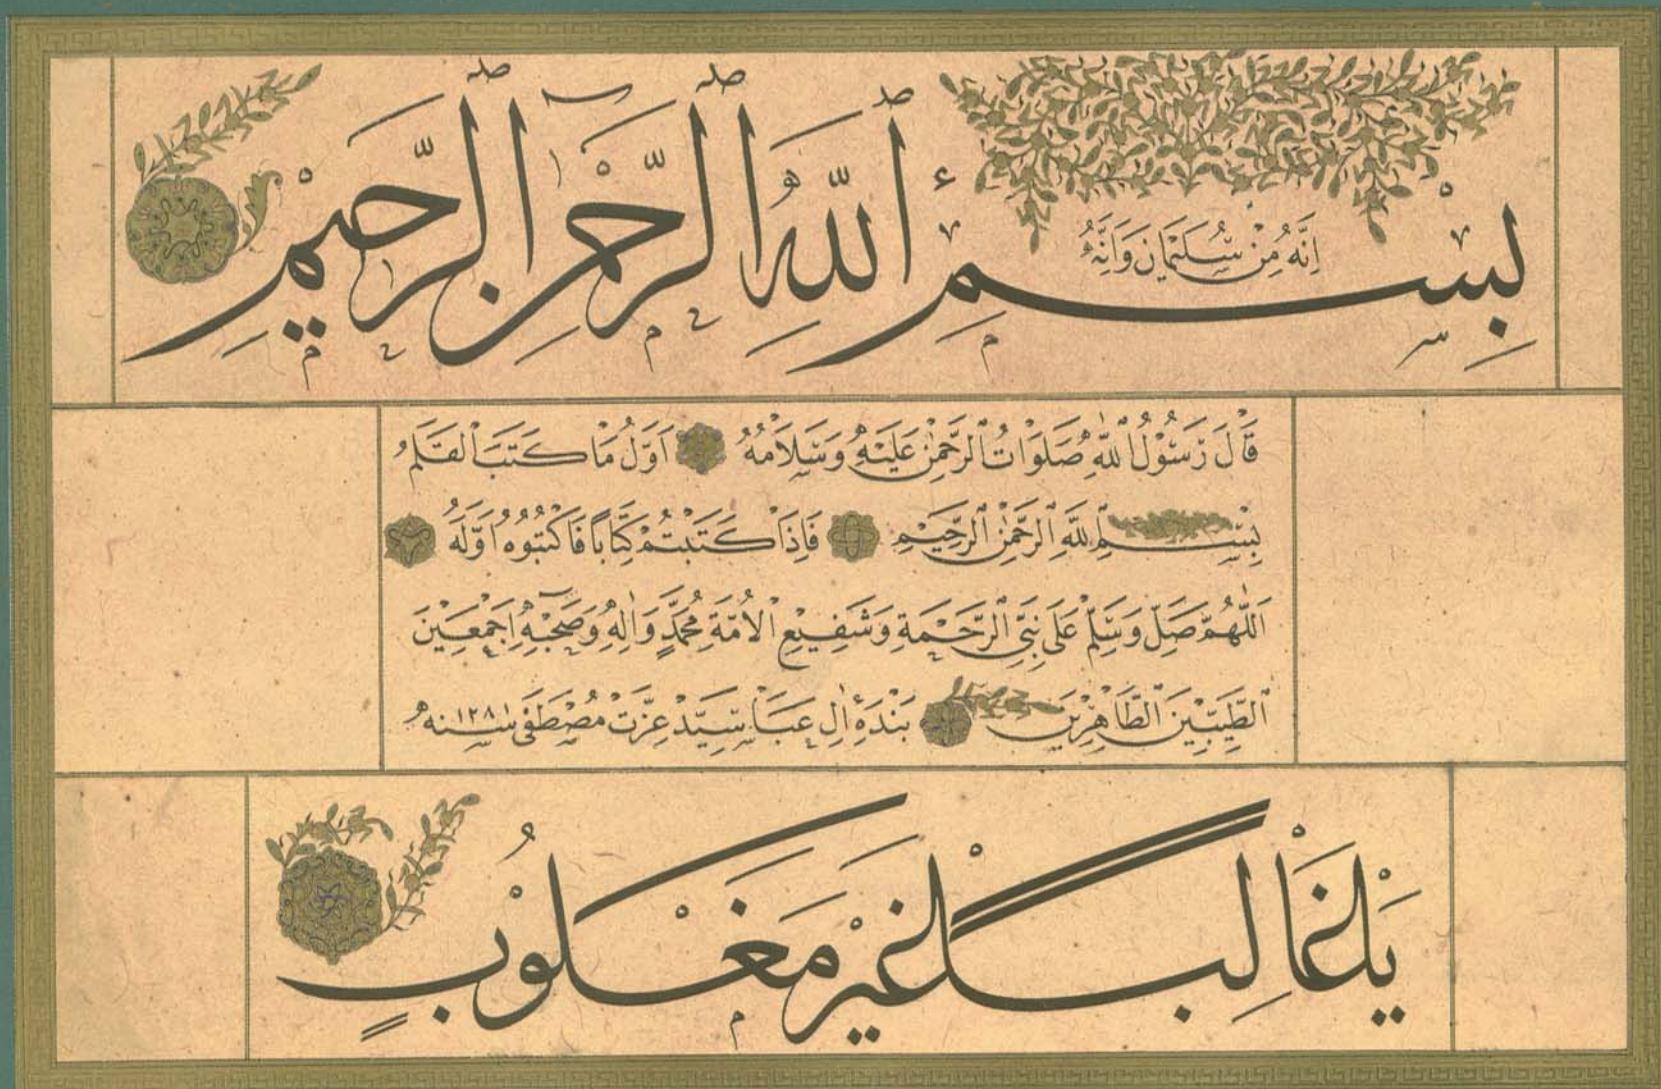 اِنَّهُ مِنْ سُلَيْمَانَ وَاِنَّهُ
بِسْمِ ٱللَّهِ ٱلرَّحْمٰنِ ٱلرَّحِيْمِ
قَالَ رَسُوْلُ ٱللّٰهِ صَلَوَاتُ ٱلرَّحْمٰنِ عَلَيْهِ وَسَلَامُهُ اَوَّلُ مَا كَتَبَ الْقَلَمُ
بِسْمِ ٱللَّهِ ٱلرَّحْمٰنِ ٱلرَّحِيْمِ فَاِذَا كَتَبْتُمْ كِتَابًا فَاكْتُبُوهُ اَوَّلَهُ
اَللّٰهُمَّ صَلِّ وَسَلِّمْ عَلَى نَبِيِّ ٱلرَّحْمَةِ وَشَفِيْعِ الْاُمَّةِ مُحَمَّدٍ وَاٰلِهِ وَصَحْبِهِ اَجْمَعِيْنَ
ٱلطَّيِّبِيْنَ ٱلطَّاهِرِيْنَ بَنْدَهِٔ اٰلِ عَبَا سَيِّدْ عِزَّتْ مُصْطَفَى سنه ١٢٨١
يَاغَالِبًا غَيْرَ مَغْلُوبٍ